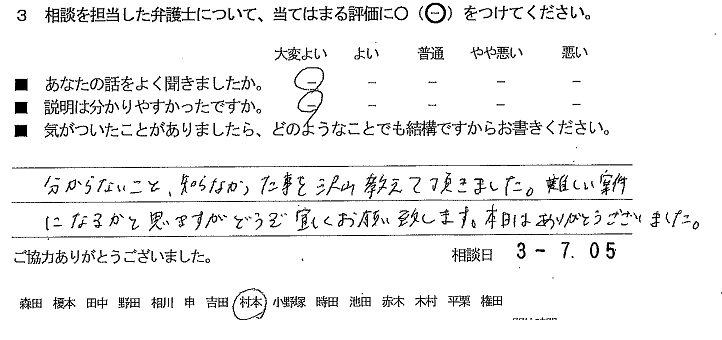 3 相談を担当した弁護士について、当てはまる評価に○(⊖)をつけてください。
大変よい よい 普通 やや悪い 悪い
■ あなたの話をよく聞きましたか。 － － － － －
■ 説明は分かりやすかったですか。 － － － － －
■ 気がついたことがありましたら、どのようなことでも結構ですからお書きください。
分からないこと、知らなかった事を沢山教えて頂きました。難しい案件
になるかと思いますがどうぞ宜しくお願い致します。本日はありがとうございました。
ご協力ありがとうございました。 相談日 3-7.05
森田 榎本 田中 野田 相川 申 吉田 村本 小野塚 時田 池田 赤木 木村 平栗 権田